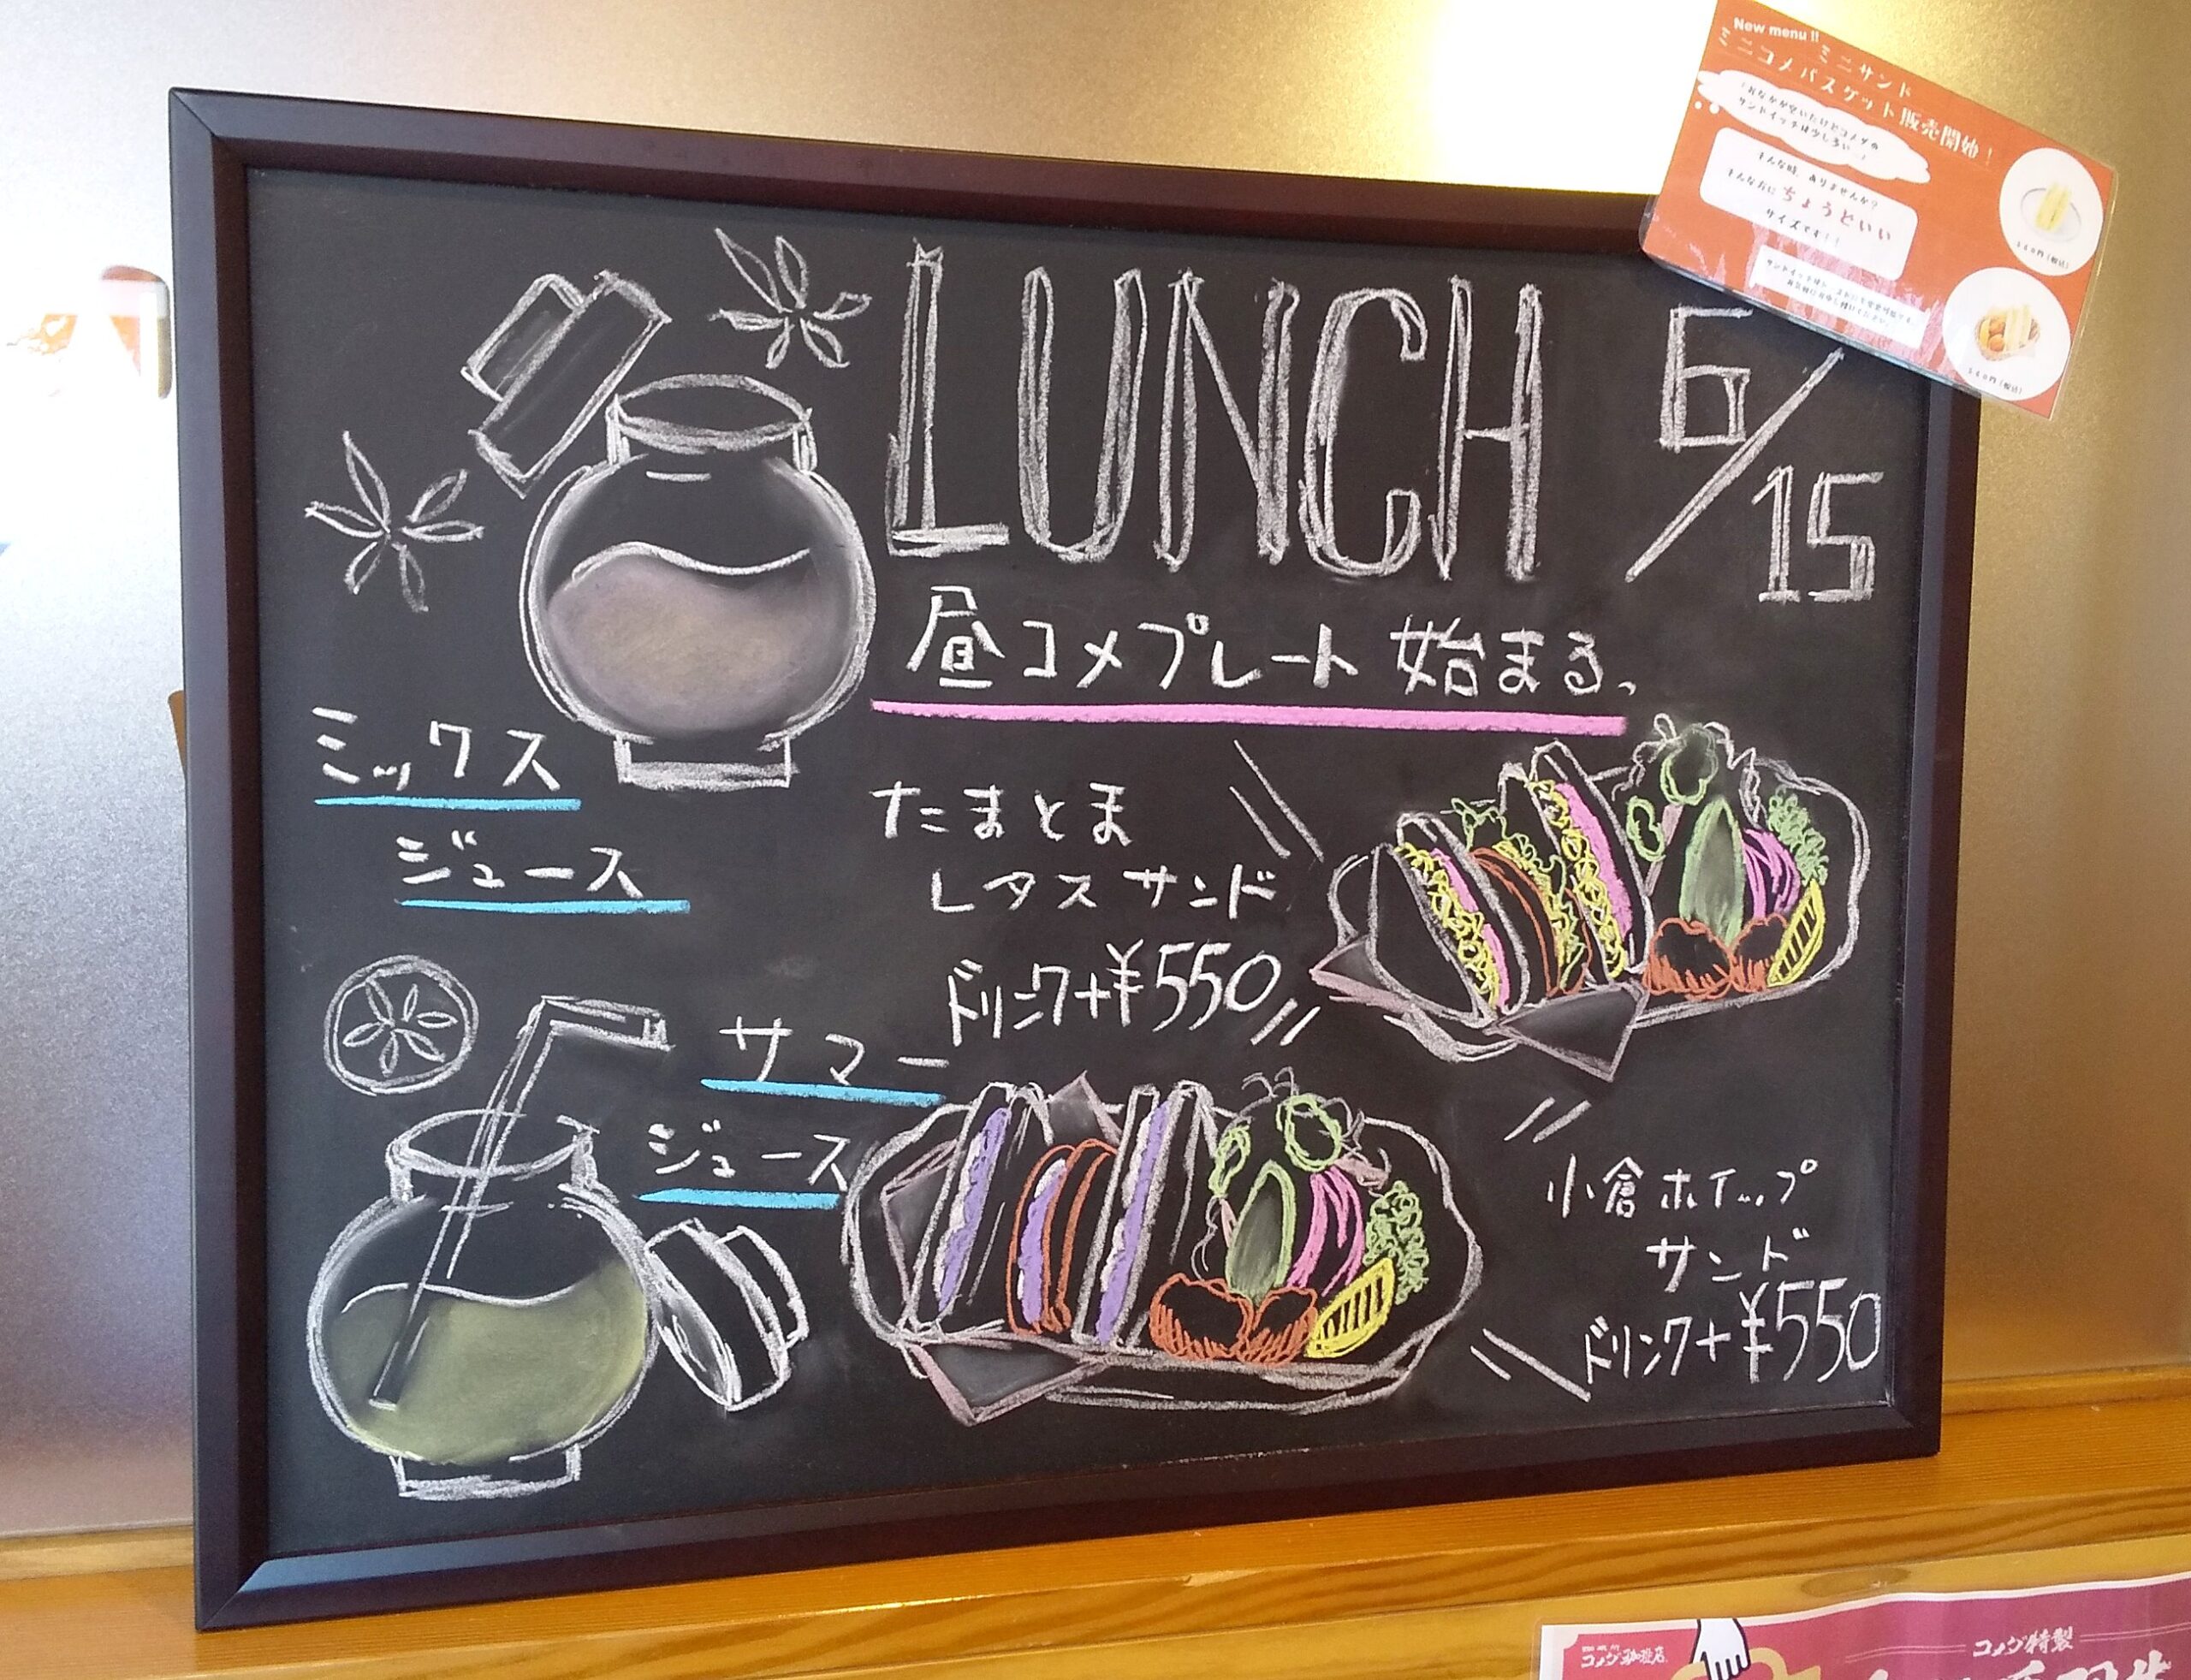 New menu !!
ミニサンド
ミニコメバスケット販売開始！
「おなかが空いたけどコメダの
サンドイッチは少し多い…」
そんな時、ありませんか？
そんな方にちょうどいい
サイズです！！
LUNCH 6/15
昼コメプレート 始まる。
ミックス
ジュース
たまとま
レタスサンド
ドリンク+¥550
サマー
ジュース
小倉ホイップ
サンド
ドリンク+¥550
コメダ珈琲店
コメダ特製